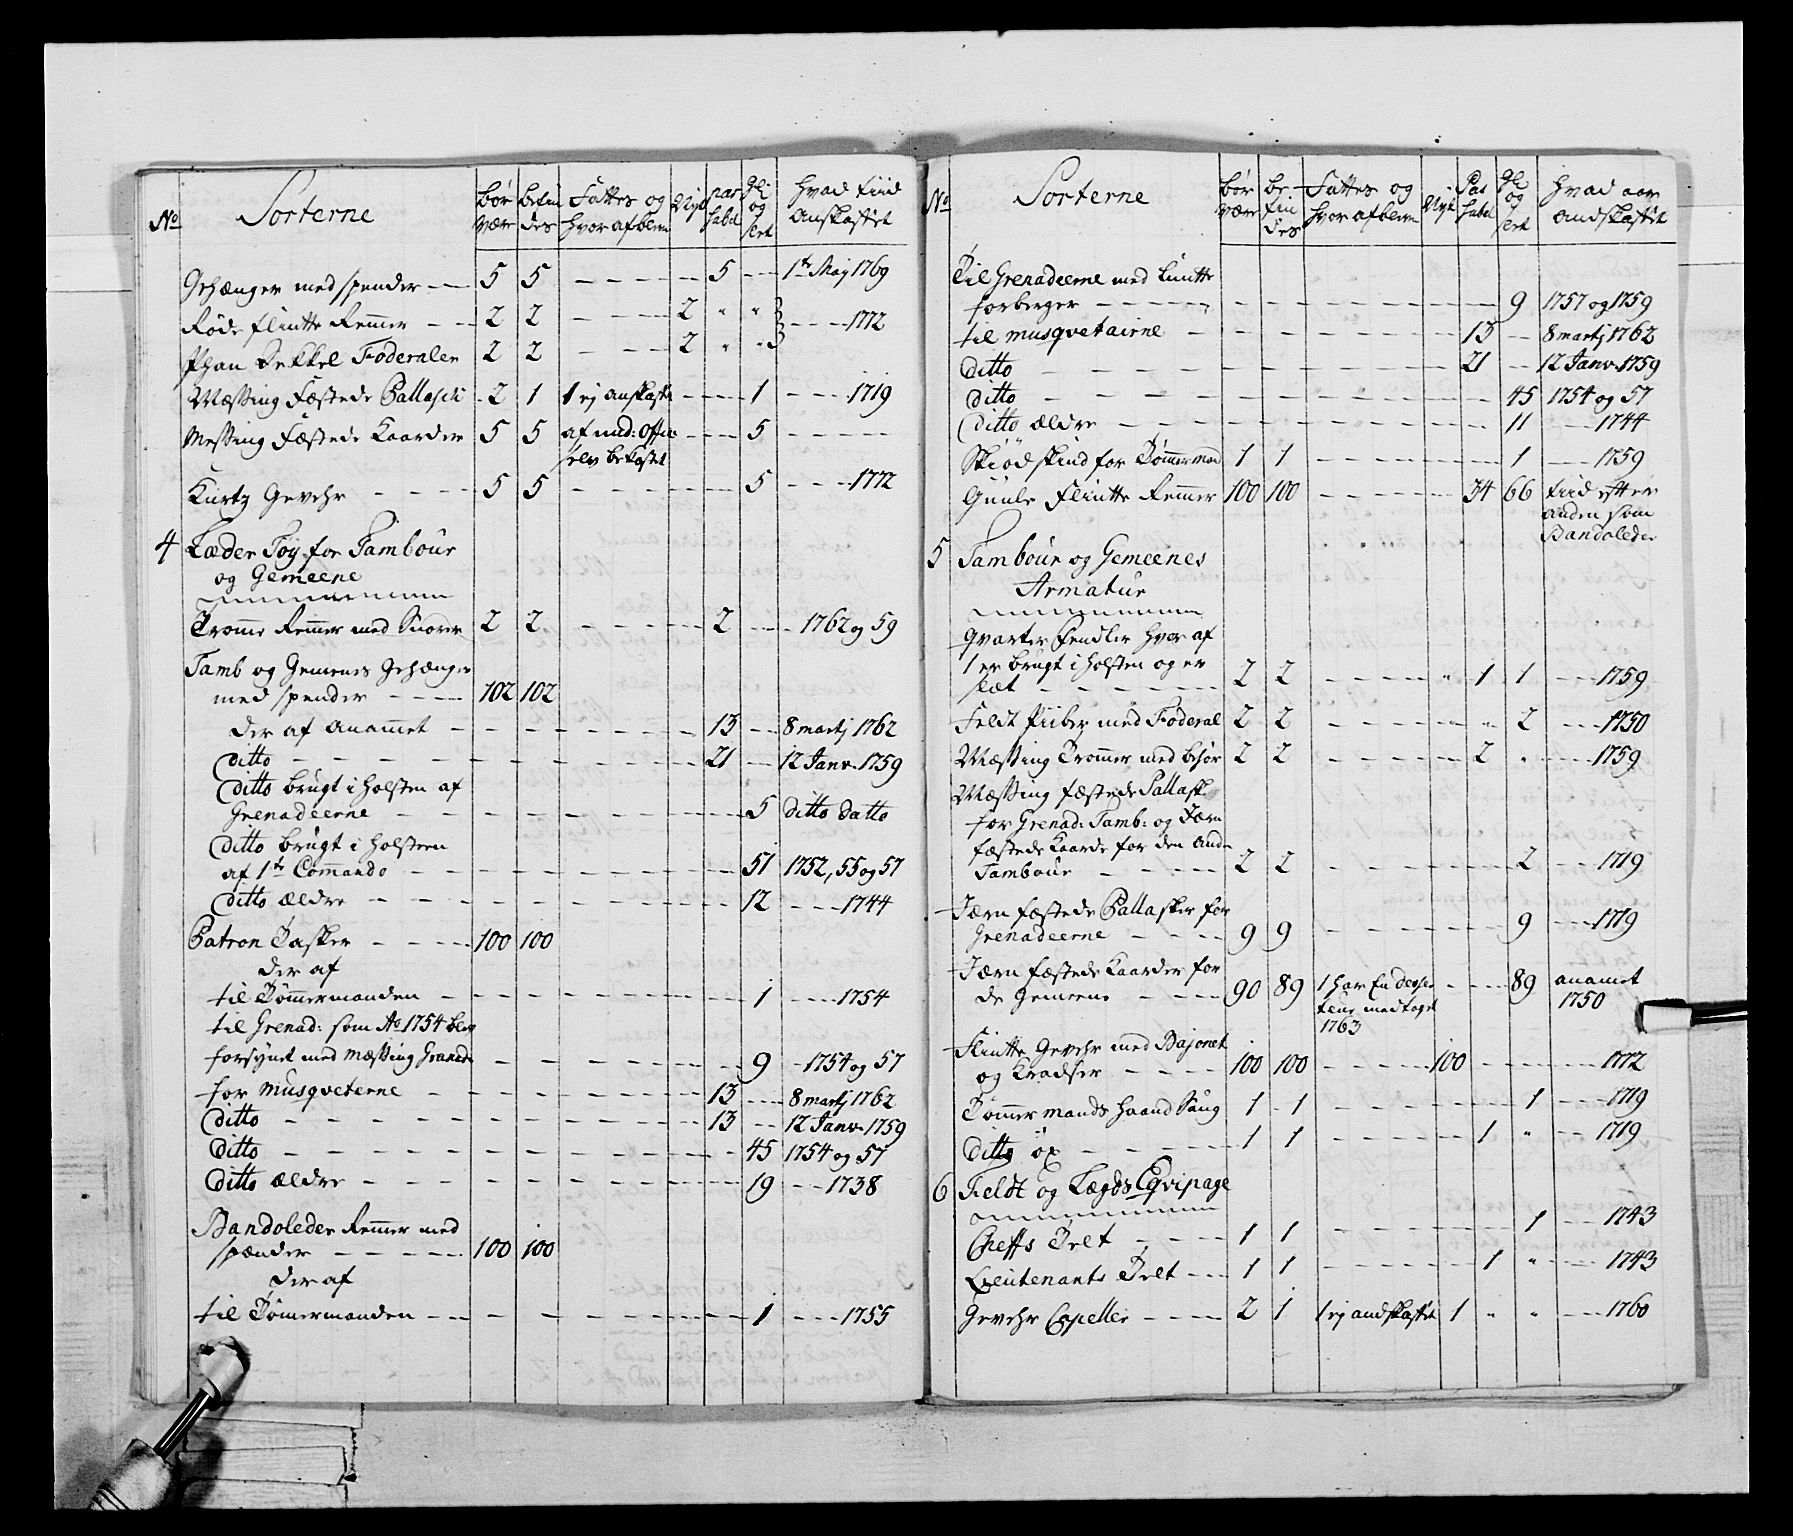 No Sorterne bør være befindes Fattes og hvor afblem Nye pas sabel gl: og slet hvad tiid Anskaffet
Gehænger med spender — 5 5 — 5 — 1te Maj 1769
Røde flintte Remmer — 2 2 — 2 " " — 1772
Skan Dekkel Foderaler 2 2 — 2 " "
Messing Fæstede Pallasch - 2 1 1 ej anskaft — 1 — 1719
Messing Fæstede Kaarder 5 5 af und: Offic: — 5 —
selv bekostet
Kurtz Gevehr — 5 5 — 5 — 1772
4 Læder Tøy for Tambour
og Gemeene
Tromme Remmer med Snorer 2 2 — 2 — 1762 og 59
Tamb og Gemenes Gehænger
med spender — 102 102
der af anammet — 13 — 8 martj 1762
ditto — 21 — 12 Janv. 1759
ditto brugt i Holsten af
Grenadeerne — 5 ditto datto
ditto brugt i Holsteen
af 1te Commando — 51 1752, 55 og 57
ditto ældre — 12 — 1744
Patron Tasker — 100 100
der af
til Tømmermanden — 1 — 1754
til Grenad: som Ao 1754 blev
forsynet med Messing Granader — 9 - 1754 og 57
for Musqveterne — 13 — 8 martj 1762
ditto — 13 — 12 Janv. 1759
ditto — 45 1754 og 57
ditto ældre — 19 — 1738
Bandoleder Remmer med
spænder — 100 100
der af
til Tømermanden — 1 — 1755
No Sorterne bør være befindes Fattes og hvor afblem Nyt Pas sabel gl: og slet hvad aar andskaffet
Til Grenadeerne med Luntte
forberger — 9 1757 og 1759
til musqvetairne — 13 — 8 martj 1762
ditto — 21 — 12 Janv. 1759
ditto — 45 1754 og 57
ditto ældre — 11 — 1744
Skiødskind for Tømmermand 1 1 — 1 — 1759
Guule Flintte Remmer 100 100 — 34 66 tiid efter
anden som
Bandoleder
5 Tambour og Gemeenes
Armatur
Qvarter Fendler hvor af
1 er brugt i Holsten og er
slæt — 2 2 — " 1 1 — 1759
Feldt Piiber med Foderal 2 2 — " 2 — 1750
Messing Trommer med behør 2 2 — 2 " — 1759
Messing fæstede Pallask
for Grenad: Tamb: og Jærn
fæstede Kaarde for den Anden
Tambour — 2 2 — 2 — 1719
Jærn fæstede Pallasker for
Grenadeerne — 9 9 — 9 — 1719
Jærn fæstede Kaarder for
de Gemeene — 90 89 1 har En deser — 89 anamet
teur medtaget 1750
1763
Flintte Gevehr med Bajonet
og Kradser — 100 100 — 100 — 1772
Tømmermands Haand Saug 1 1 — 1 — 1719
ditto øx — 1 1 — 1 " — 1719
6 Feldt og Lægds Eqvipage
Cheffs Telt — 1 1 — 1 — 1743
Lieutenants Telt — 1 1 — 1 " — 1743
Gevehr Capeller — 2 1 1 ej andskaffet 1 " " — 1760